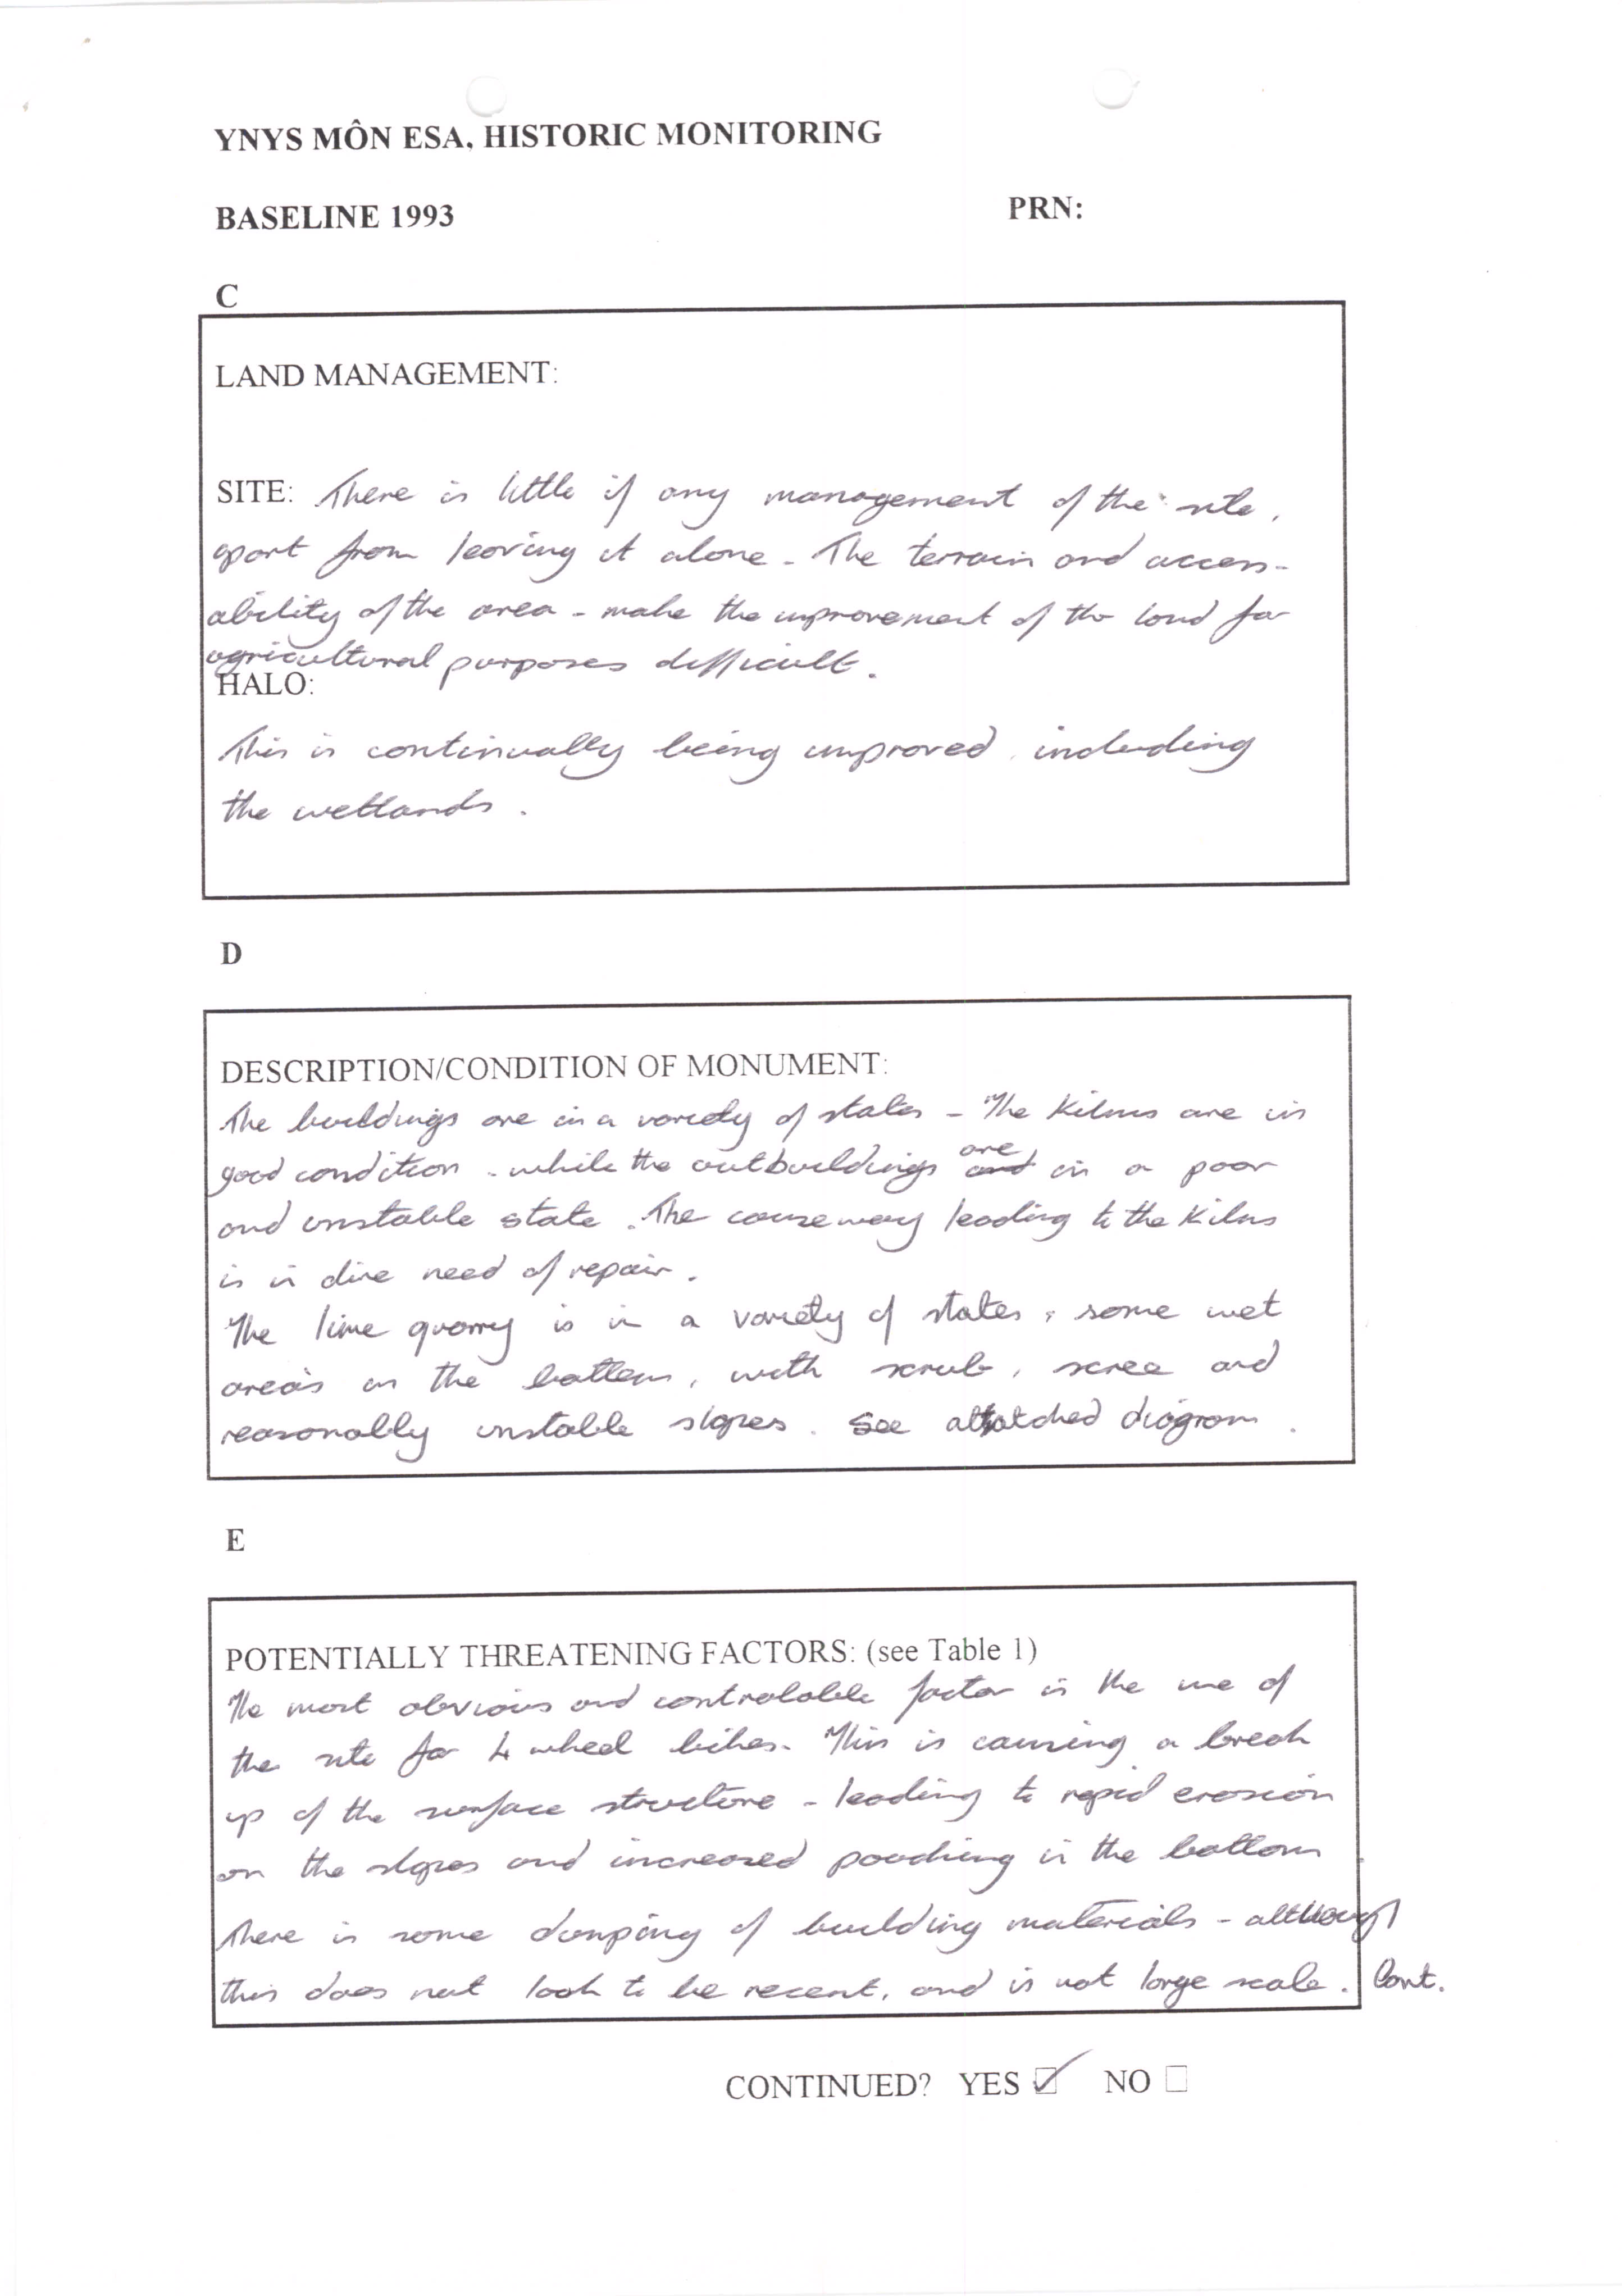 YNYS MÔN ESA, HISTORIC MONITORING
BASELINE 1993
PRN:
C
LAND MANAGEMENT:
SITE: There is little if any management of the site,
apart from leaving it alone - The terrain and access-
ability of the area - make the improvement of the land for
agricultural purposes difficult.
HALO:
This is continually being improved, including
the wetlands.
D
DESCRIPTION/CONDITION OF MONUMENT:
The buildings are in a variety of states - The Kilns are in
are
good condition - while the outbuildings and in a poor
and unstable state. The causeway leading to the Kilns
is in dire need of repair.
The lime quarry is in a variety of states, some wet
areas on the bottom, with scrub, scree and
reasonably unstable slopes. See attatched diagram.
E
POTENTIALLY THREATENING FACTORS: (see Table 1)
The most obvious and controlable factor is the use of
the site for 4 wheel bikes. This is causing a break
up of the surface structure - leading to rapid erosion
on the slopes and increased poaching in the bottom.
There is some dumping of building materials - although
this does not look to be recent, and is not large scale. Cont.
CONTINUED? YES ☑ NO ☐